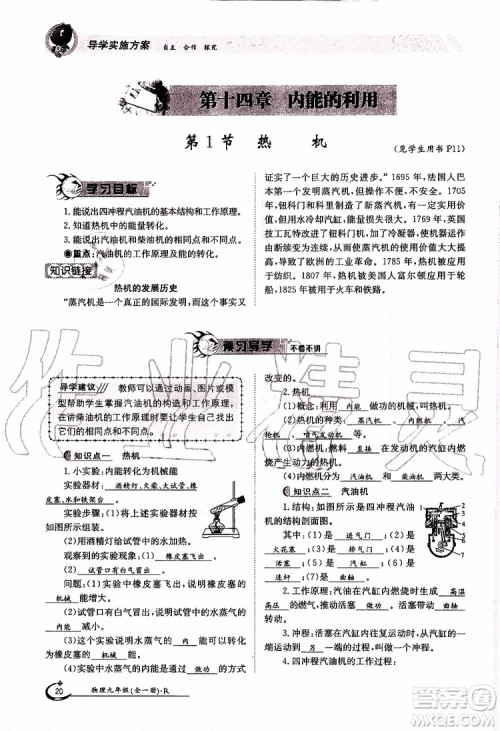 导学实施方案 自主 合作 探究
第十四章 内能的利用
第1节 热 机
(见学生用书 P11)
学习目标
1.能说出四冲程汽油机的基本结构和工作原理。
2.知道热机中的能量转化。
3.能说出汽油机和柴油机的相同点和不同点。
●重点:汽油机的工作原理。
知识链接
热机的发展历史
“蒸汽机是一个真正的国际发明,而这个事实又
证实了一个巨大的历史进步。”1695 年,法国人巴
本第一个发明蒸汽机,但没有付诸使用。1705 年,
钮科门和科里制造了新蒸汽机,也没有多大的经济
效益,但已经开始付诸使用。1769 年,英国
技工瓦特改进了钮科门机,加了冷凝器,使机器运作
由断续改变为连续,从此蒸汽机的使用价值大大提
高,导致了欧洲的工业革命。1785 年,热机被应
用于纺织。1807 年,热机被美国人富尔顿应用于轮
船,1825 年被用于火车和铁路。
预习导学 不看不讲
导学建议 教师可以通过动画、图片或模
型帮助学生掌握汽油机的构造和工作原理,
在讲柴油机的工作原理时,可以让学生找出
它们的相同点和不同点。
知识点一 热机
1.小实验:内能转化为机械能
(1)实验器材:酒精灯、火柴、试管、橡
皮塞、水和铁架台。
如图所示,将上述实验器材安装
好。
(2)用酒精灯给试管中的水加热,
观察到的实验现象: 橡皮塞飞出 、
试管口有白气出现 。
问题:(1)实验中橡皮塞飞出,说明橡皮塞的
机械 能增大。
(2)试管口有白气出现,说明试管中水蒸气的
内 能减小。
(3)实验中水蒸气的 内 能转化
为橡皮塞的 机械 能。
(4)实验中水蒸气的内能是通过 做功 的方式
改变的。
2.热机
(1)概念:利用 内能 做功的机械。
(2)热机的种类: 蒸汽机 、 内燃机 、 汽轮机
、 喷气发动机 等。
(3)内燃机:燃料 直接 在发动机的汽缸内燃
烧产生动力的热机。
(4)内燃机分为 汽油机 和 柴油机 两大类。
知识点二 汽油机
1.结构:如图所示是四冲程汽油
机的结构剖面图。
其中:(1)是 进气门 ;(2)是
火花塞 ;(3)是 排气门 ;(4)是
活塞 ;(5)是 汽缸 ;(6)是
连杆 ;(7)是 曲轴 。
2.工作原理:汽油在汽缸内燃烧时生成 高温
高压 的燃气,燃气推动活塞 做功 ,带动 曲轴
转动。
3.冲程:活塞在汽缸内往复运动时,从汽缸的
一端运动到另一端的过程,叫做一个冲程。
4.四冲程汽油机的工作过程:
20 物理九年级(全一册)·R